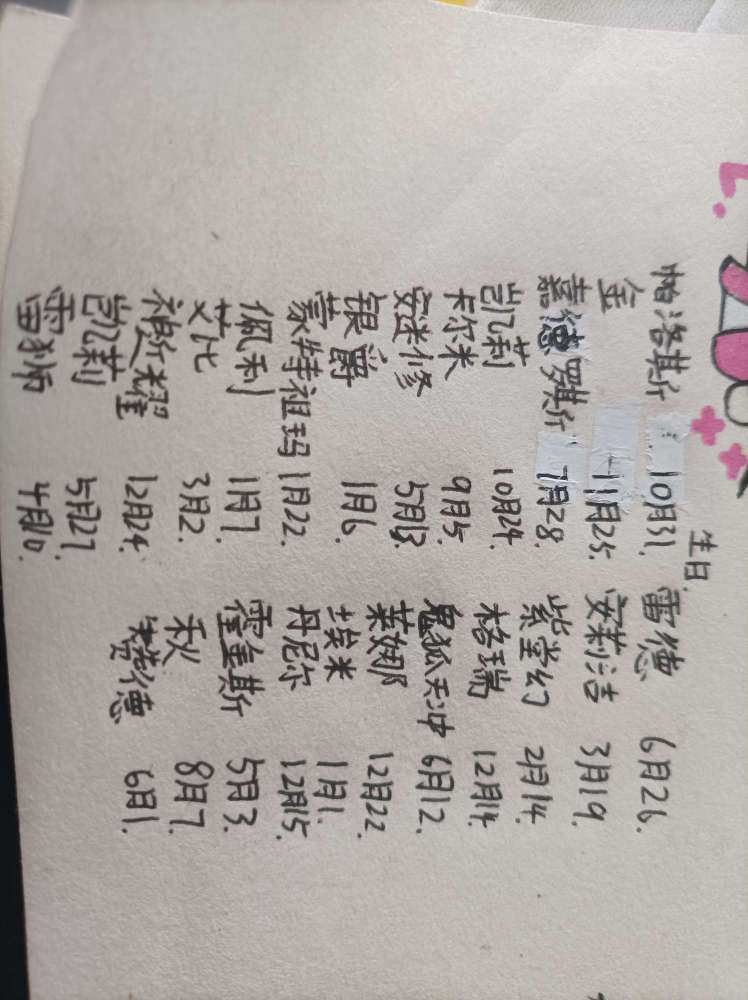 生日.
帕洛斯 10月31. 雷德 6月26.
金 11月25. 安莉洁 3月19.
嘉德罗斯 7月28. 紫堂幻 2月14.
凯莉 10月24. 格瑞 12月14.
卡尔米 9月5. 鬼狐天冲 6月12.
安迷修 5月13. 莱娜 12月22.
银爵 1月6. 埃米 1月1.
蒙特祖玛 1月22. 丹尼尔 12月15.
佩利 1月7. 5月3.
艾比 3月2. 秋 8月7.
神近耀 12月24. 赞德 6月1.
凯莉 5月27.
雷狮 4月10.